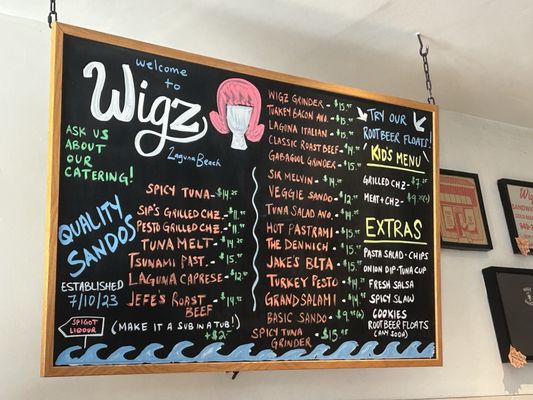 welcome
to
Wigz
Laguna Beach
ASK US
ABOUT
OUR
CATERING!
QUALITY
SANDOS
ESTABLISHED
7/10/23
SPIGOT
LIQUOR
SPICY TUNA - $14.25
SIP'S GRILLED CHZ - $11.
PESTO GRILLED CHZ - $11.
TUNA MELT - $14.
TSUNAMI PAST. - $15.
LAGUNA CAPRESE - $12.
JEFE'S ROAST BEEF - $14.
(MAKE IT A SUB IN A TUB!)
+$2.
WIGZ GRINDER - $15.
TURKEY BACON AVO. - $15.
LAGUNA ITALIAN - $15.
CLASSIC ROAST BEEF - $14.
GABAGOUL GRINDER - $15.
SIR MELVIN - $14.
VEGGIE SANDO - $12.
TUNA SALAD AVO. - $14.
HOT PASTRAMI - $15.
THE DENNICH - $15.
JAKE'S BLTA - $15.
TURKEY PESTO - $14.
GRAND SALAMI - $14.
BASIC SANDO - $9.
SPICY TUNA GRINDER - $15.
TRY OUR
ROOT BEER FLOATS!
KID'S MENU
GRILLED CHZ - $7.25
MEAT + CHZ - $9.
EXTRAS
PASTA SALAD - CHIPS
ONION DIP - TUNA CUP
FRESH SALSA
SPICY SLAW
COOKIES
ROOT BEER FLOATS
(ANY SODA)